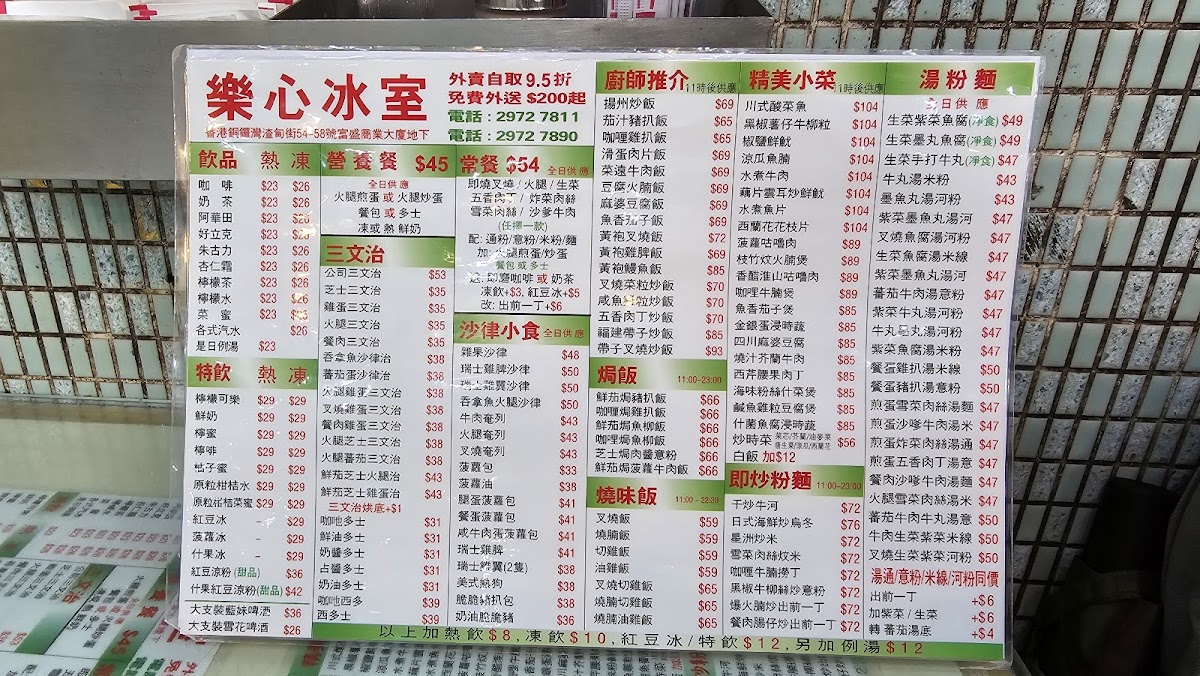 樂心冰室
香港銅鑼灣渣甸街54-58號富盛商業大廈地下
外賣自取 9.5折
免費外送 $200起
電話：2972 7811
電話：2972 7890
飲品 熱 凍
咖啡 $23 $26
奶茶 $23 $26
阿華田 $23 $26
好立克 $23 $26
朱古力 $23 $26
杏仁霜 $23 $26
檸檬茶 $23 $26
檸檬水 $23 $26
菜蜜 $23
各式汽水 $26
是日例湯 $23
特飲 熱 凍
檸檬可樂 $29 $29
鮮奶 $29 $29
檸蜜 $29 $29
檸啡 $29 $29
桔子蜜 $29 $29
原粒柑桔水 $29 $29
原粒柑桔菜蜜 $29 $29
紅豆冰 – $29
菠蘿冰 – $29
什果冰 – $29
紅豆涼粉(甜品) $36
什果紅豆涼粉(甜品) $42
大支裝藍妹啤酒 $36
大支裝雪花啤酒 $26
營養餐 $45
全日供應
火腿煎蛋 或 火腿炒蛋
餐包 或 多士
凍 或 熱 鮮奶
三文治
公司三文治 $53
芝士三文治 $35
雞蛋三文治 $35
火腿三文治 $35
餐肉三文治 $35
吞拿魚沙律治 $38
蕃茄蛋沙律治 $38
火腿雞蛋三文治 $38
叉燒雞蛋三文治 $38
餐肉雞蛋三文治 $38
火腿芝士三文治 $38
火腿蕃茄三文治 $38
鮮茄芝士火腿治 $43
鮮茄芝士雞蛋治 $43
三文治烘底+$1
咖吔多士 $31
鮮油多士 $31
奶醬多士 $31
占醬多士 $31
奶油多士 $31
咖吔西多 $39
西多士 $39
常餐 $54 全日供應
即燒叉燒 / 火腿 / 生菜
五香肉丁 / 炸菜肉絲
雪菜肉絲 / 沙爹牛肉
(任擇一款)
配: 通粉/意粉/米粉/麵
加: 火腿煎蛋/炒蛋
餐包 或 多士
送: 即磨咖啡 或 奶茶
凍飲+$3, 紅豆冰+$5
改: 出前一丁+$6
沙律小食 全日供應
雜果沙律 $48
瑞士雞脾沙律 $50
瑞士雞翼沙律 $50
吞拿魚沙律 $50
牛肉奄列 $43
火腿奄列 $43
叉燒奄列 $43
菠蘿包 $33
菠蘿油 $38
腿蛋菠蘿包 $41
餐蛋菠蘿包 $41
咸牛肉蛋菠蘿包 $41
瑞士雞脾 $41
瑞士雞翼(2隻) $38
美式熱狗 $38
脆脆豬扒包 $38
奶油脆脆豬 $36
廚師推介 11時後供應
揚州炒飯 $69
茄汁豬扒飯 $65
咖喱雞扒飯 $65
滑蛋肉片飯 $69
菜遠牛肉飯 $69
豆腐火腩飯 $69
麻婆豆腐飯 $69
魚香茄子飯 $69
黃袍叉燒飯 $72
黃袍雞脾飯 $69
黃袍鰻魚飯 $85
叉燒菜粒炒飯 $70
咸魚雞粒炒飯 $70
五香肉丁炒飯 $70
福建帶子炒飯 $85
帶子叉燒炒飯 $93
焗飯 11:00-23:00
鮮茄焗豬扒飯 $66
咖喱焗雞扒飯 $66
鮮茄焗魚柳飯 $66
咖喱焗魚柳飯 $66
芝士焗肉醬意粉 $66
鮮茄焗菠蘿牛肉飯 $66
燒味飯 11:00 - 22:30
叉燒飯 $59
燒腩飯 $59
切雞飯 $59
油雞飯 $59
叉燒切雞飯 $65
燒腩切雞飯 $65
燒腩油雞飯 $65
精美小菜 11時後供應
川式酸菜魚 $104
黑椒薯仔牛柳粒 $104
椒鹽鮮魷 $104
涼瓜魚腩 $104
水煮牛肉 $104
藕片雲耳炒鮮魷 $104
水煮魚片 $104
西蘭花花枝片 $104
菠蘿咕嚕肉 $89
枝竹炆火腩煲 $89
香醋淮山咕嚕肉 $89
咖哩牛腩煲 $89
魚香茄子煲 $85
金銀蛋浸時蔬 $85
四川麻婆豆腐 $85
燒汁芥蘭牛肉 $85
西芹腰果肉丁 $85
海味粉絲什菜煲 $85
鹹魚雞粒豆腐煲 $85
什菌魚腐浸時蔬 $85
炒時菜 菜芯/芥蘭/油麥菜 唐生菜/涼瓜/西蘭花 $56
白飯 加$12
即炒粉麵 11:00-23:00
干炒牛河 $72
日式海鮮炒烏冬 $76
星洲炒米 $72
雪菜肉絲炆米 $72
咖喱牛腩撈丁 $72
黑椒牛柳絲炒意粉 $72
爆火腩炒出前一丁 $72
餐肉腸仔炒出前一丁 $72
湯粉麵
全日供應
生菜紫菜魚腐(淨食) $49
生菜墨丸魚腐(淨食) $49
生菜手打牛丸(淨食) $47
牛丸湯米粉 $43
墨魚丸湯河粉 $43
紫菜墨魚丸湯河 $47
叉燒魚腐湯河粉 $47
生菜魚腐湯米線 $47
紫菜墨魚丸湯河 $47
蕃茄牛肉湯意粉 $47
紫菜牛丸湯河粉 $47
牛丸墨丸湯河粉 $47
紫菜魚腐湯米粉 $47
餐蛋雞扒湯米線 $50
餐蛋豬扒湯意粉 $50
煎蛋雪菜肉絲湯麵 $47
煎蛋沙爹牛肉湯米 $47
煎蛋炸菜肉絲湯通 $47
煎蛋五香肉丁湯意 $47
餐肉沙爹牛肉湯麵 $47
火腿雪菜肉絲湯米 $47
蕃茄牛肉牛丸湯意 $50
牛肉生菜紫菜米線 $50
叉燒生菜紫菜河粉 $50
湯通/意粉/米線/河粉同價
出前一丁 +$6
加紫菜 / 生菜 +$6
轉 蕃茄湯底 +$4
以上加熱飲$8,凍飲$10,紅豆冰/特飲$12,另加例湯$12